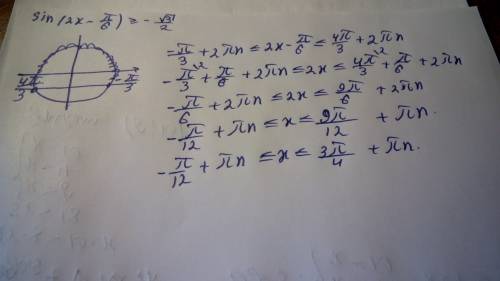 sin(2x - π/6) ≥ -√3/2
4π/3
-π/3
-π/3 + 2πn ≤ 2x - π/6 ≤ 4π/3 + 2πn
-π/3^2 + π/6 + 2πn ≤ 2x ≤ 4π/3^2 + π/6 + 2πn
-π/6 + 2πn ≤ 2x ≤ 9π/6 + 2πn
-π/12 + πn ≤ x ≤ 9π/12 + πn.
-π/12 + πn ≤ x ≤ 3π/4 + πn.